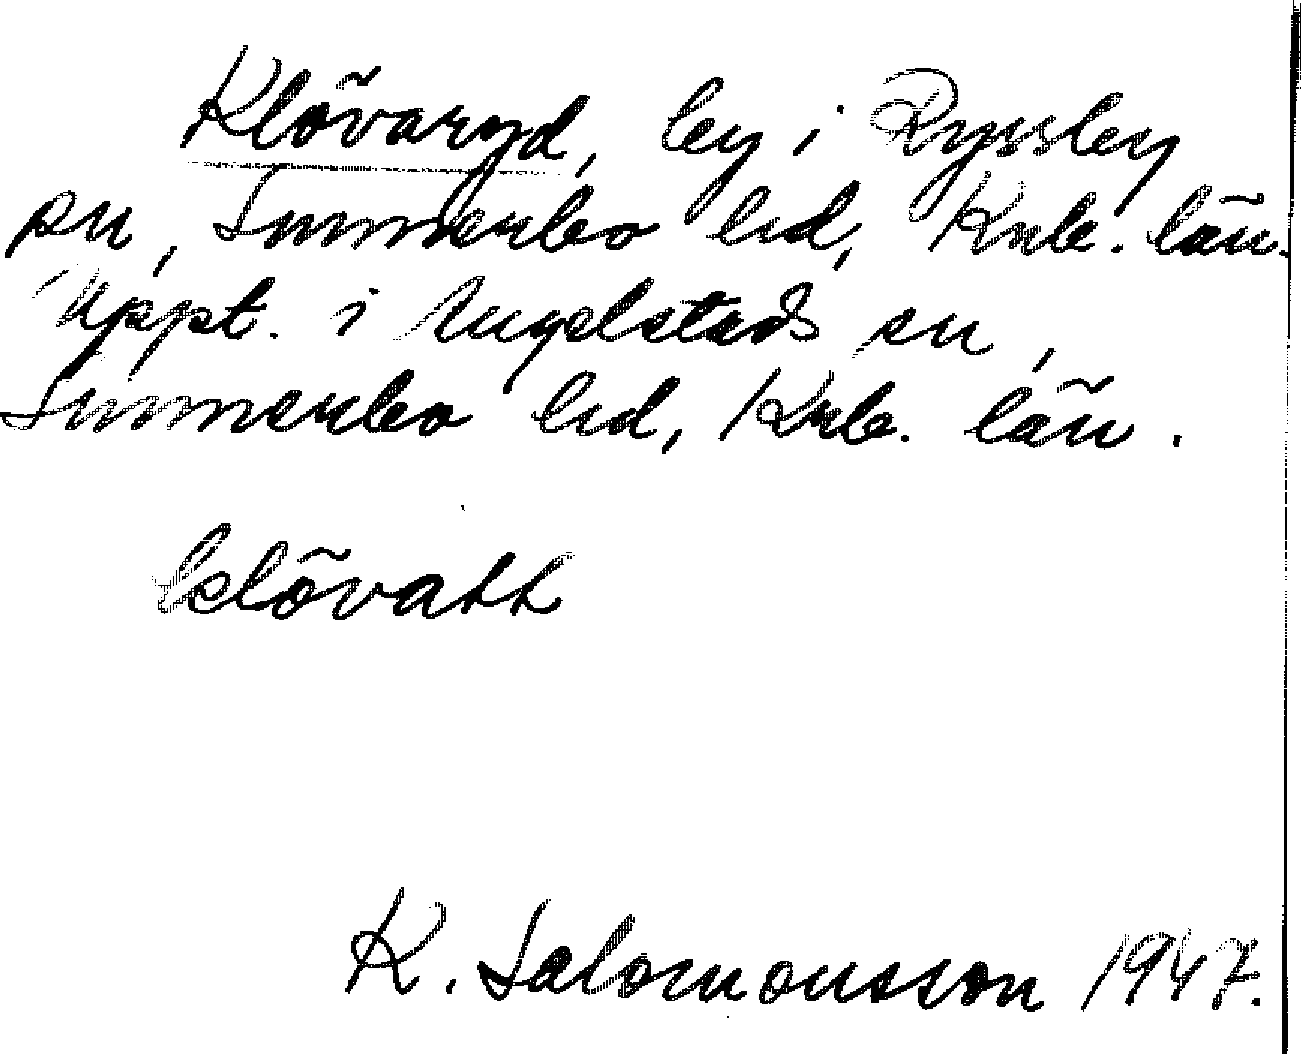 Klövaryd, by i Ryssby
sn, Sunnerbo hd, Knb. län.
Uppt. i Angelstads sn,
Sunnerbo hd, Knb. län.
klövatt
K. Salomonsson 1947.